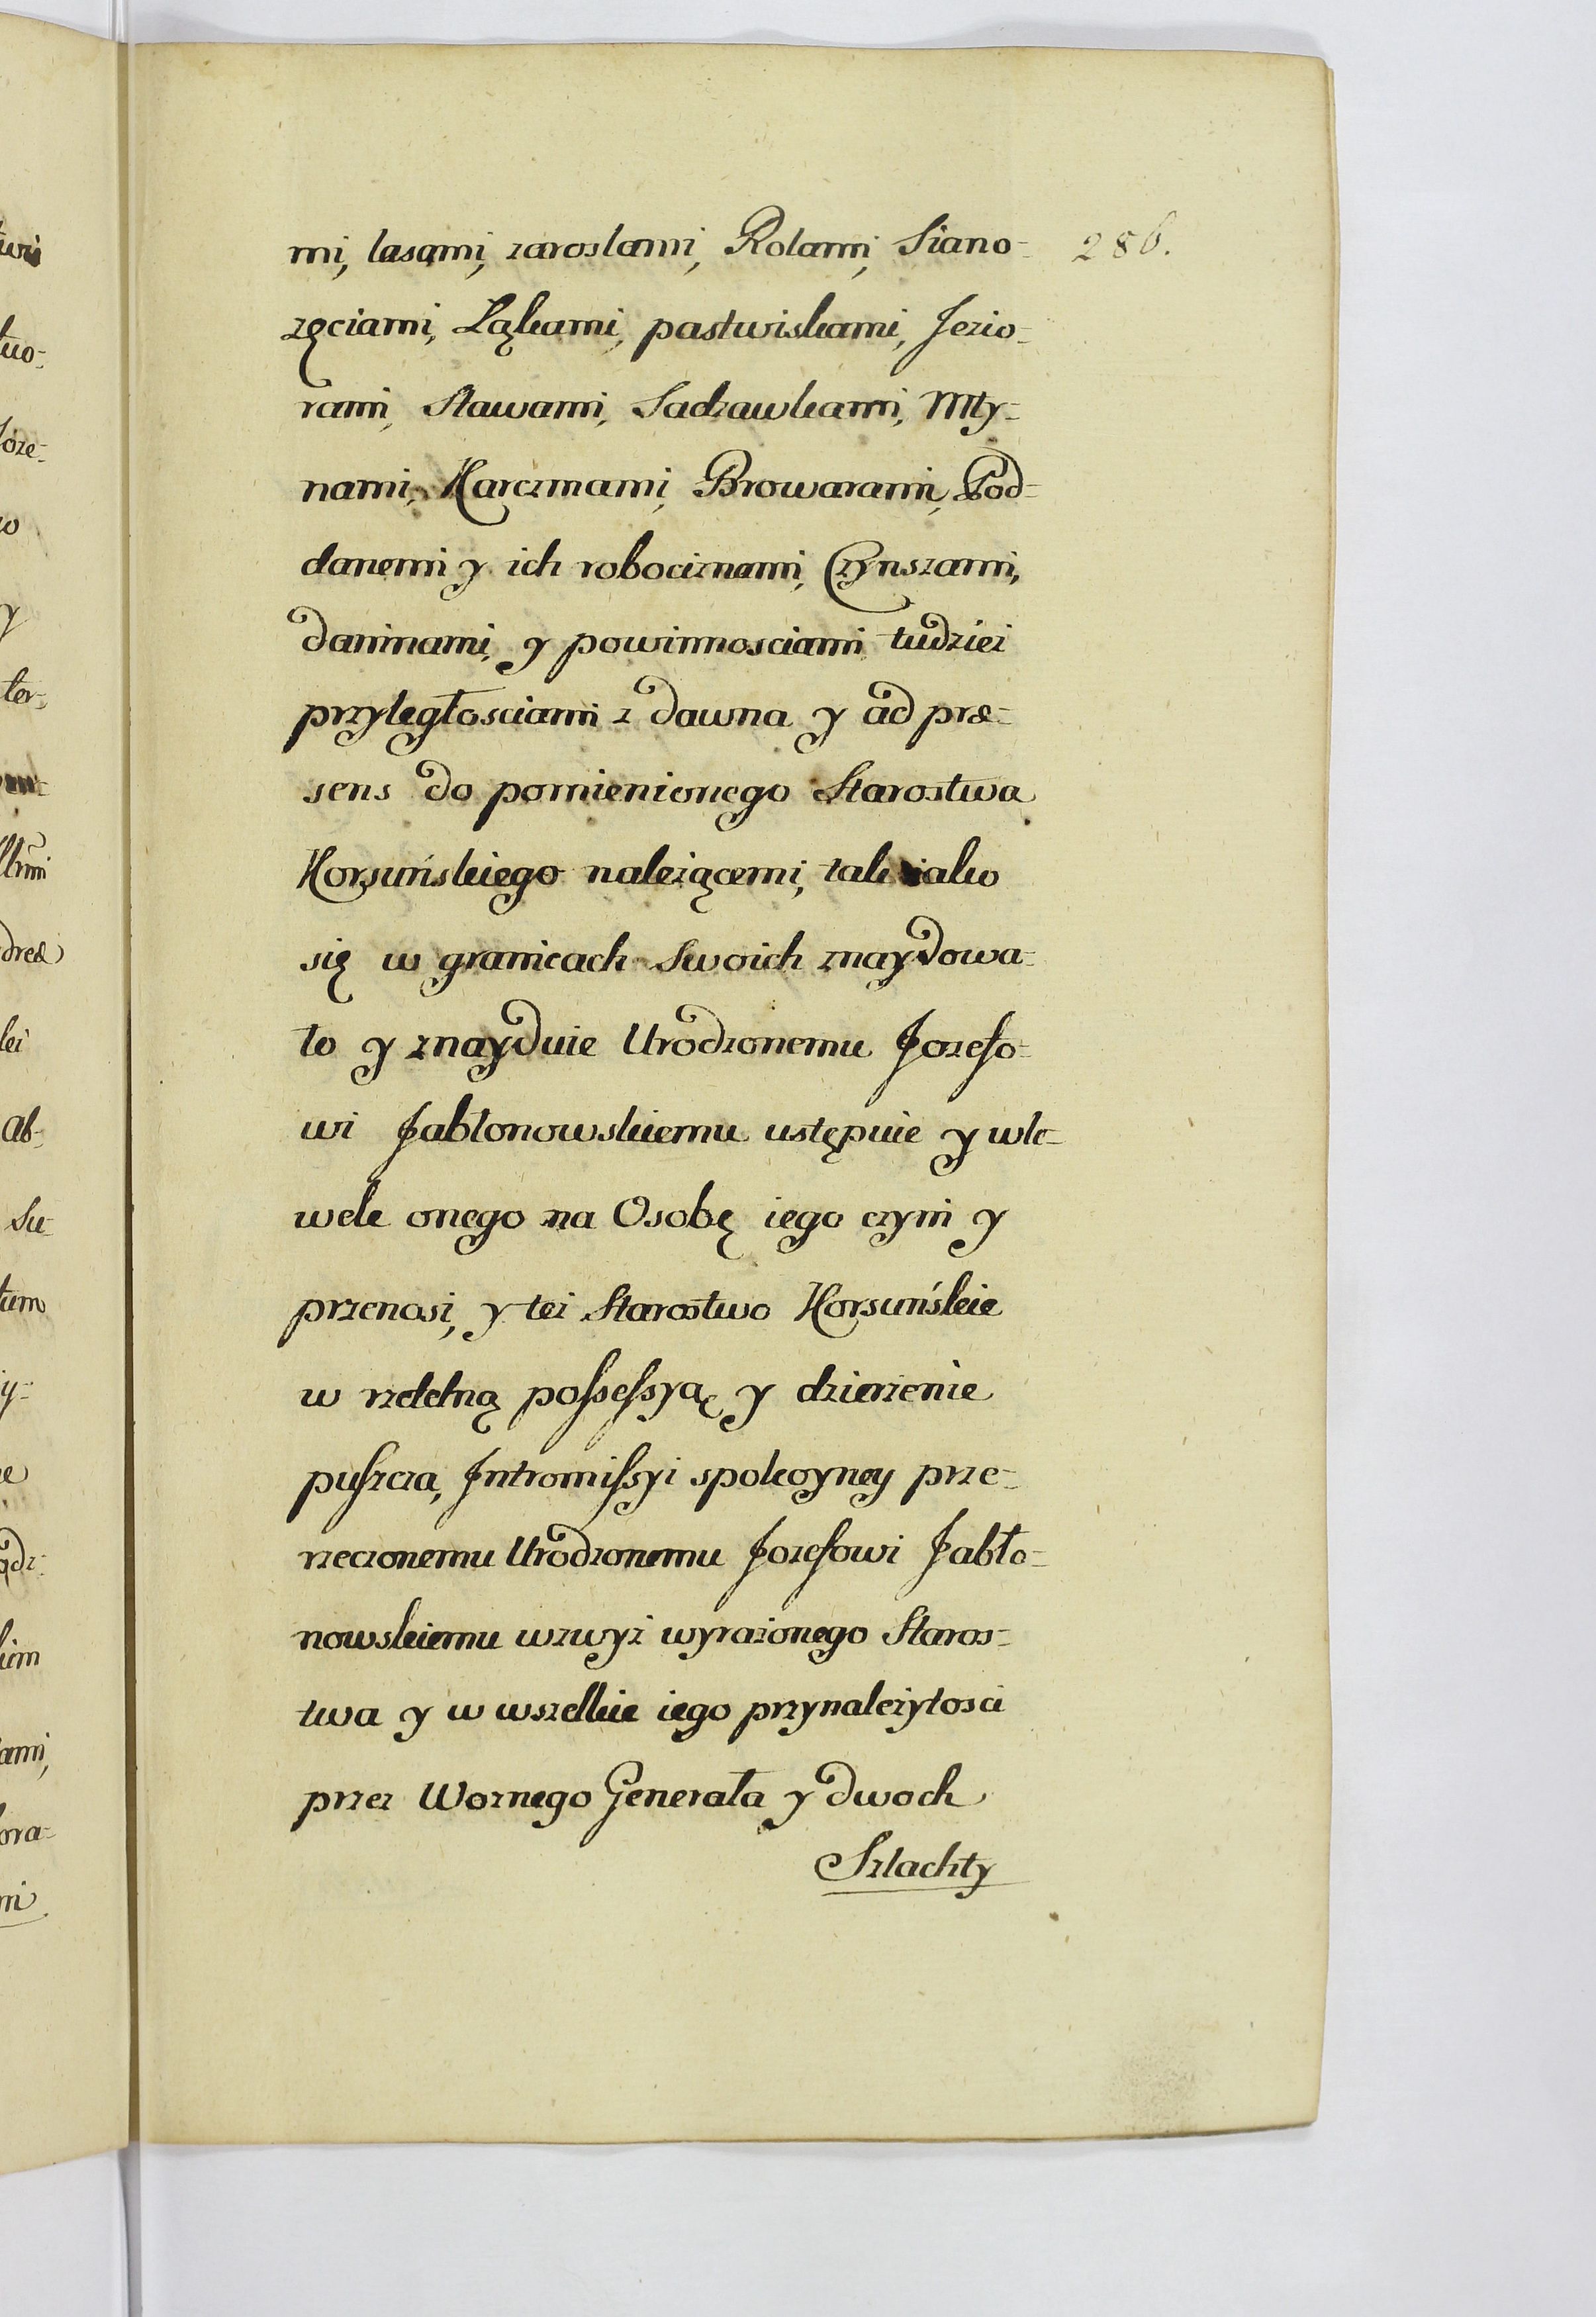 mi, lasami, zaroslami, Rolami, Siano-
286.
zęciami, Ląkami, pastwiskami, Jezio-
rami, Stawami, Sadzawkami, Mły-
nami, Karczmami, Browarami, Pod-
danemi y ich robociznami, Czynszami,
daninami, y powinnosciami tudzież
przyległosciami z dawna y ad præ-
sens do pomienionego Starostwa
Korsuńskiego należącemi, tak iako
się w granicach swoich znaydowa-
ło y znayduie Urodzonemu Jozefo-
wi Jabłonowskiemu ustępuie y wle-
wek onego na Osobę iego czyni y
przenosi, y też Starostwo Korsuńskie
w rzetelną possessyą y dzierżenie
puszcza, Intromissyi spokoyney prze-
rzeczonemu Urodzonemu Jozefowi Jabło-
nowskiemu wzwyż wyrażonego Staros-
twa y w wszelkie iego przynależytosci
przez Woznego Generała y dwoch
Szlachty